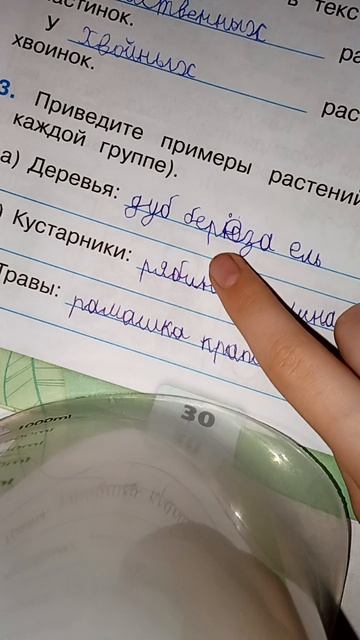 в текс
ственных
У хвойных
хвоинок.
3. Приведите примеры растений
каждой группе).
а) Деревья: дуб берёза ель
) Кустарники: рябин
Травы: ромашка крап
30
1000ml